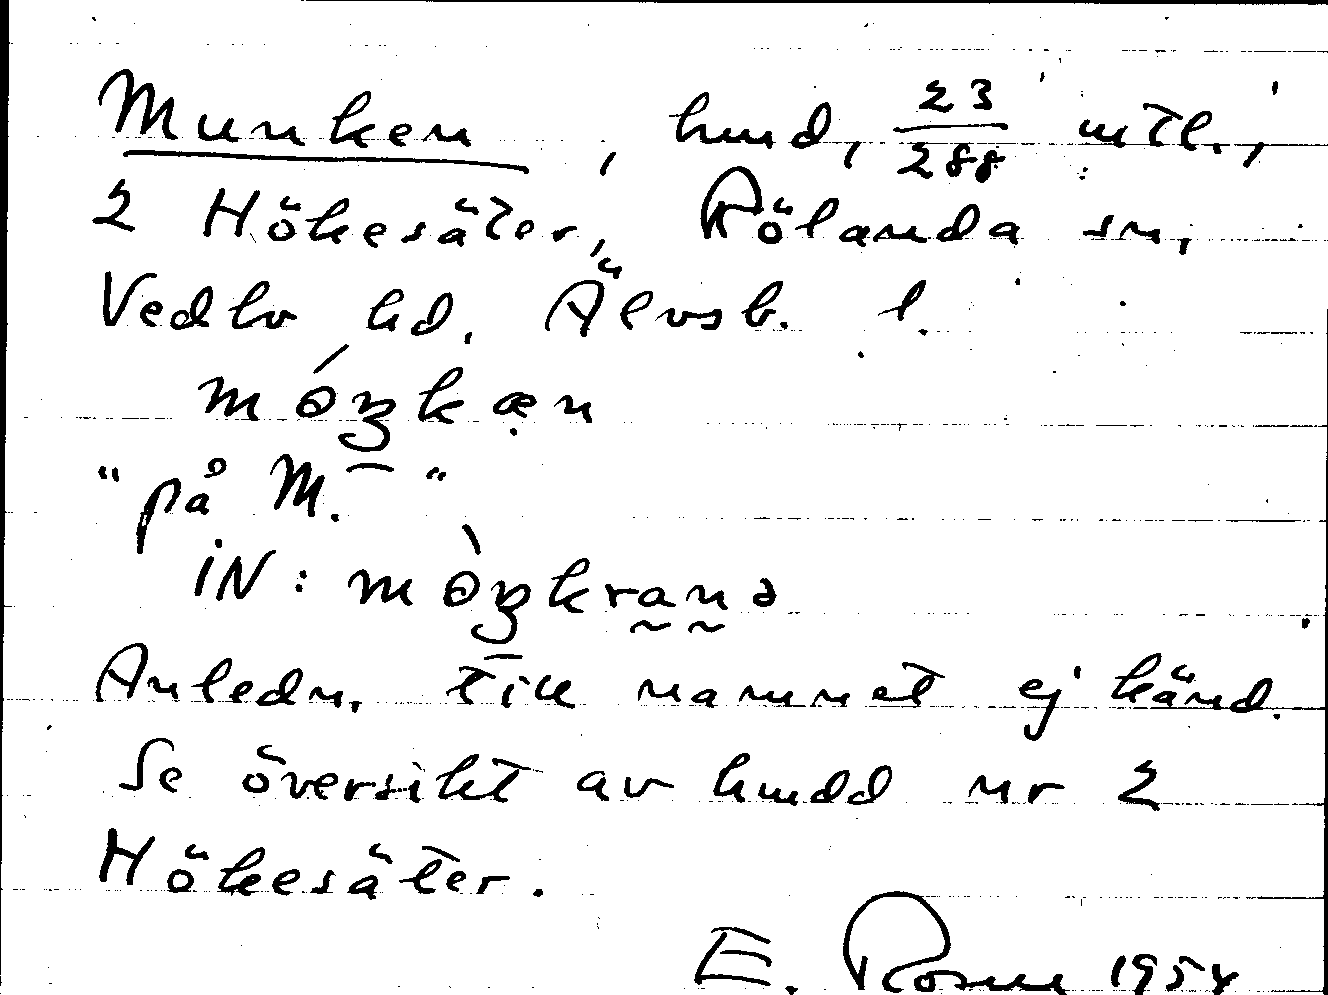 Munken, hmd, 23/288 mtl.,
2 Hökesäter, Rölanda sn,
Vedbo hd. Älvsb. l.
móŋkæn
"på M."
iN: mòŋkrana
Anledn. till namnet ej känd.
Se översikt av hmdd nr 2
Hökesäter.
E. Rosell 1954